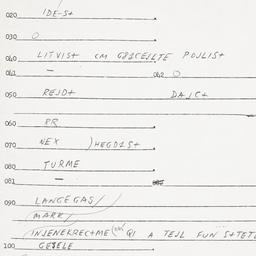 020 IDE-S+
030 O
040 LITVIS+ CM GBZCEILTE POJLIS+
061 — 062 O
050 REJD+ DAJC+
060 PR
070 NEX )HEGDIS+
080 TURME
081 —
090 LANGEGAS/
MARK/
INJENEKREC+ME (QI A TEJL FUN S+TETL
100 GESELE